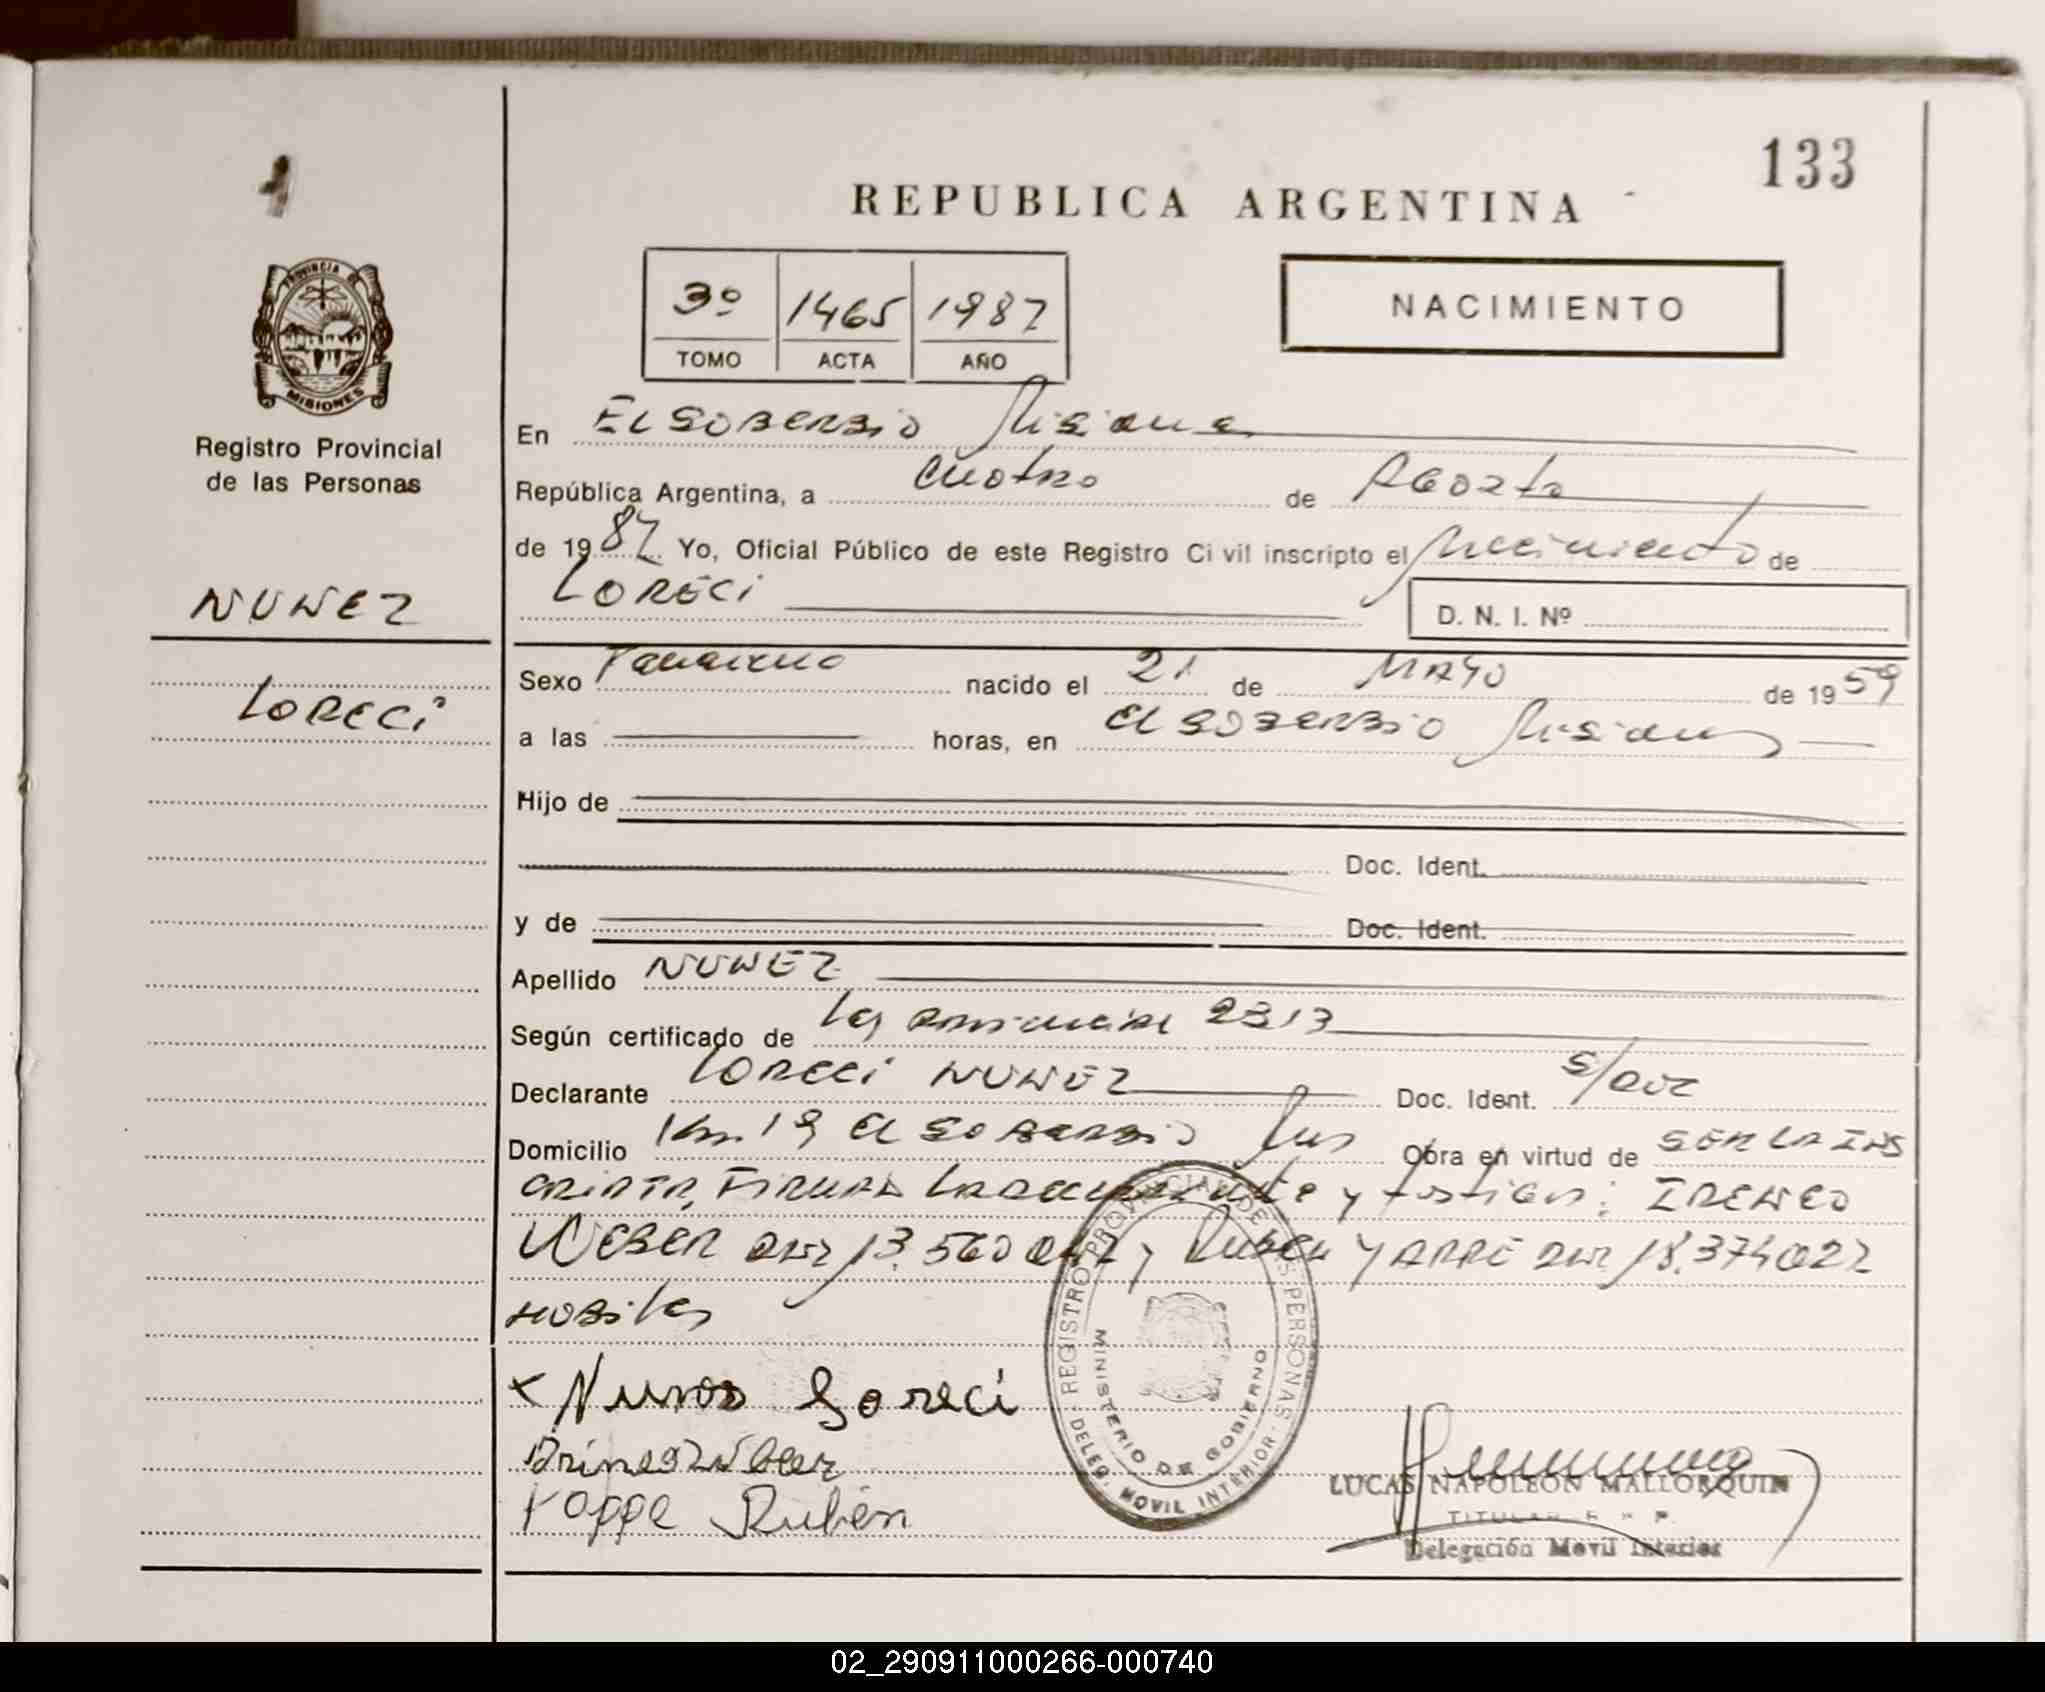 133
REPUBLICA ARGENTINA
3º 1465 1987
TOMO ACTA AÑO
NACIMIENTO
PROVINCIA DE
MISIONES
Registro Provincial
de las Personas
En EL SOBERBIO Misiones
República Argentina, a Cuatro de Agosto
de 1987 Yo, Oficial Público de este Registro Civil inscripto el Nacimiento de
LORECI
D. N. I. Nº
NUNEZ
LORECI
Sexo Femenino nacido el 21 de MAYO de 1959
a las horas, en EL SOBERBIO Misiones
Hijo de
Doc. Ident.
y de Doc. Ident.
Apellido NUNEZ
Según certificado de Ley Provincial 2313
Declarante LORECI NUNEZ Doc. Ident.
Domicilio Km. 19 EL SOBERBIO Mns Obra en virtud de SER LA INS
CRIPTA, FIRMAN y testigos: IRENEO
WEBER DNI 13.560 y Ruben YAPPE DNI 18.374022
HABILES
x Nunez Loreci
Yoppe Rubén
REGISTRO PROVINCIAL DE LAS PERSONAS
MINISTERIO DE GOBIERNO
DELEG. MOVIL INTERIOR
LUCAS NAPOLEON MALLORQUIN
TITULAR
Delegación Movil Interior
02_290911000266-000740